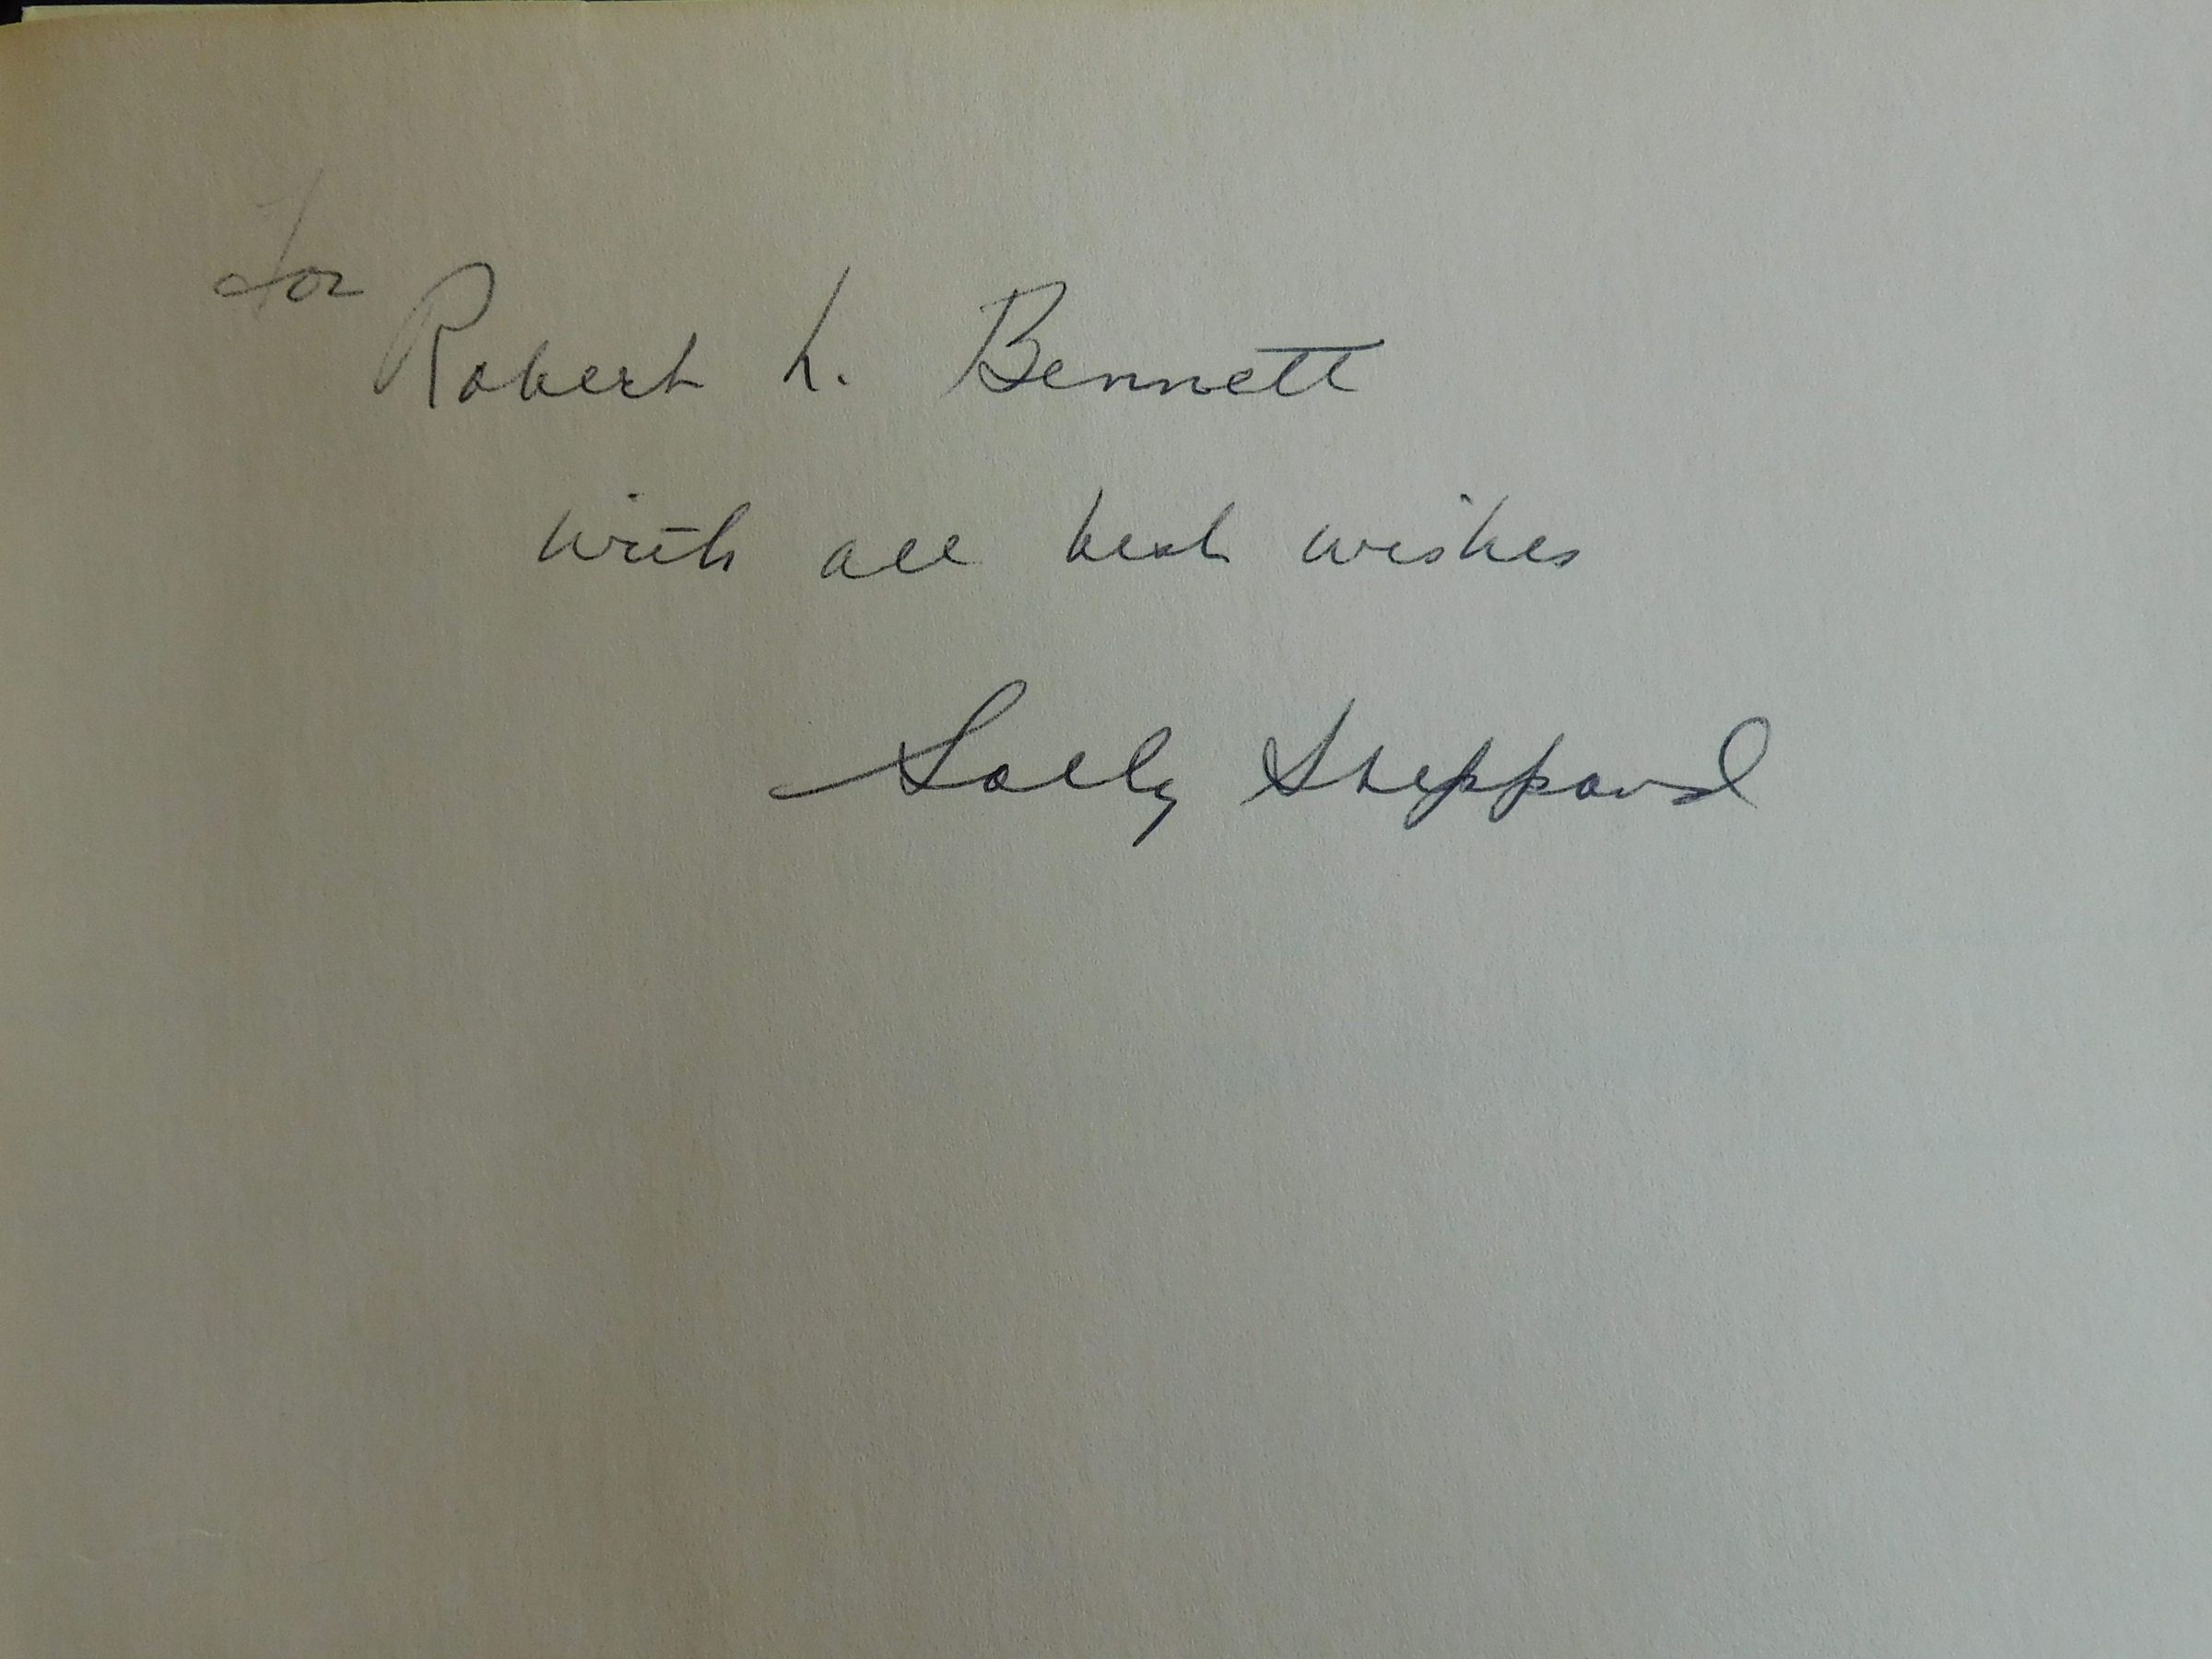 For
Robert L. Bennett
with all best wishes
Sally Sheppard